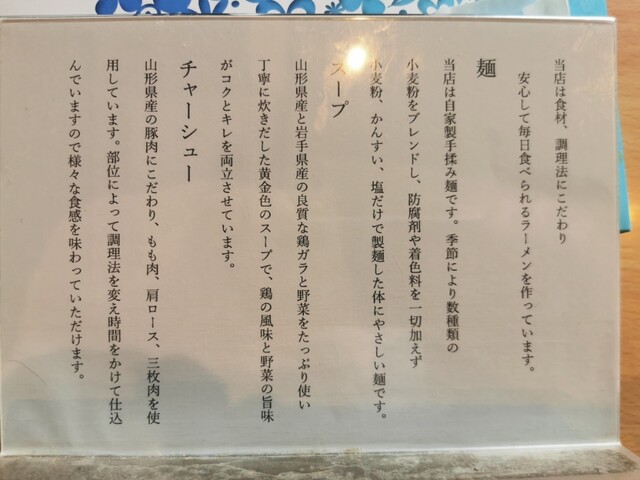 当店は食材、調理法にこだわり
安心して毎日食べられるラーメンを作っています。
麺
当店は自家製手揉み麺です。季節により数種類の
小麦粉をブレンドし、防腐剤や着色料を一切加えず
小麦粉、かんすい、塩だけで製麺した体にやさしい麺です。
スープ
山形県産と岩手県産の良質な鶏ガラと野菜をたっぷり使い
丁寧に炊きだした黄金色のスープで、鶏の風味と野菜の旨味
がコクとキレを両立させています。
チャーシュー
山形県産の豚肉にこだわり、もも肉、肩ロース、三枚肉を使
用しています。部位によって調理法を変え時間をかけて仕込
んでいますので様々な食感を味わっていただけます。